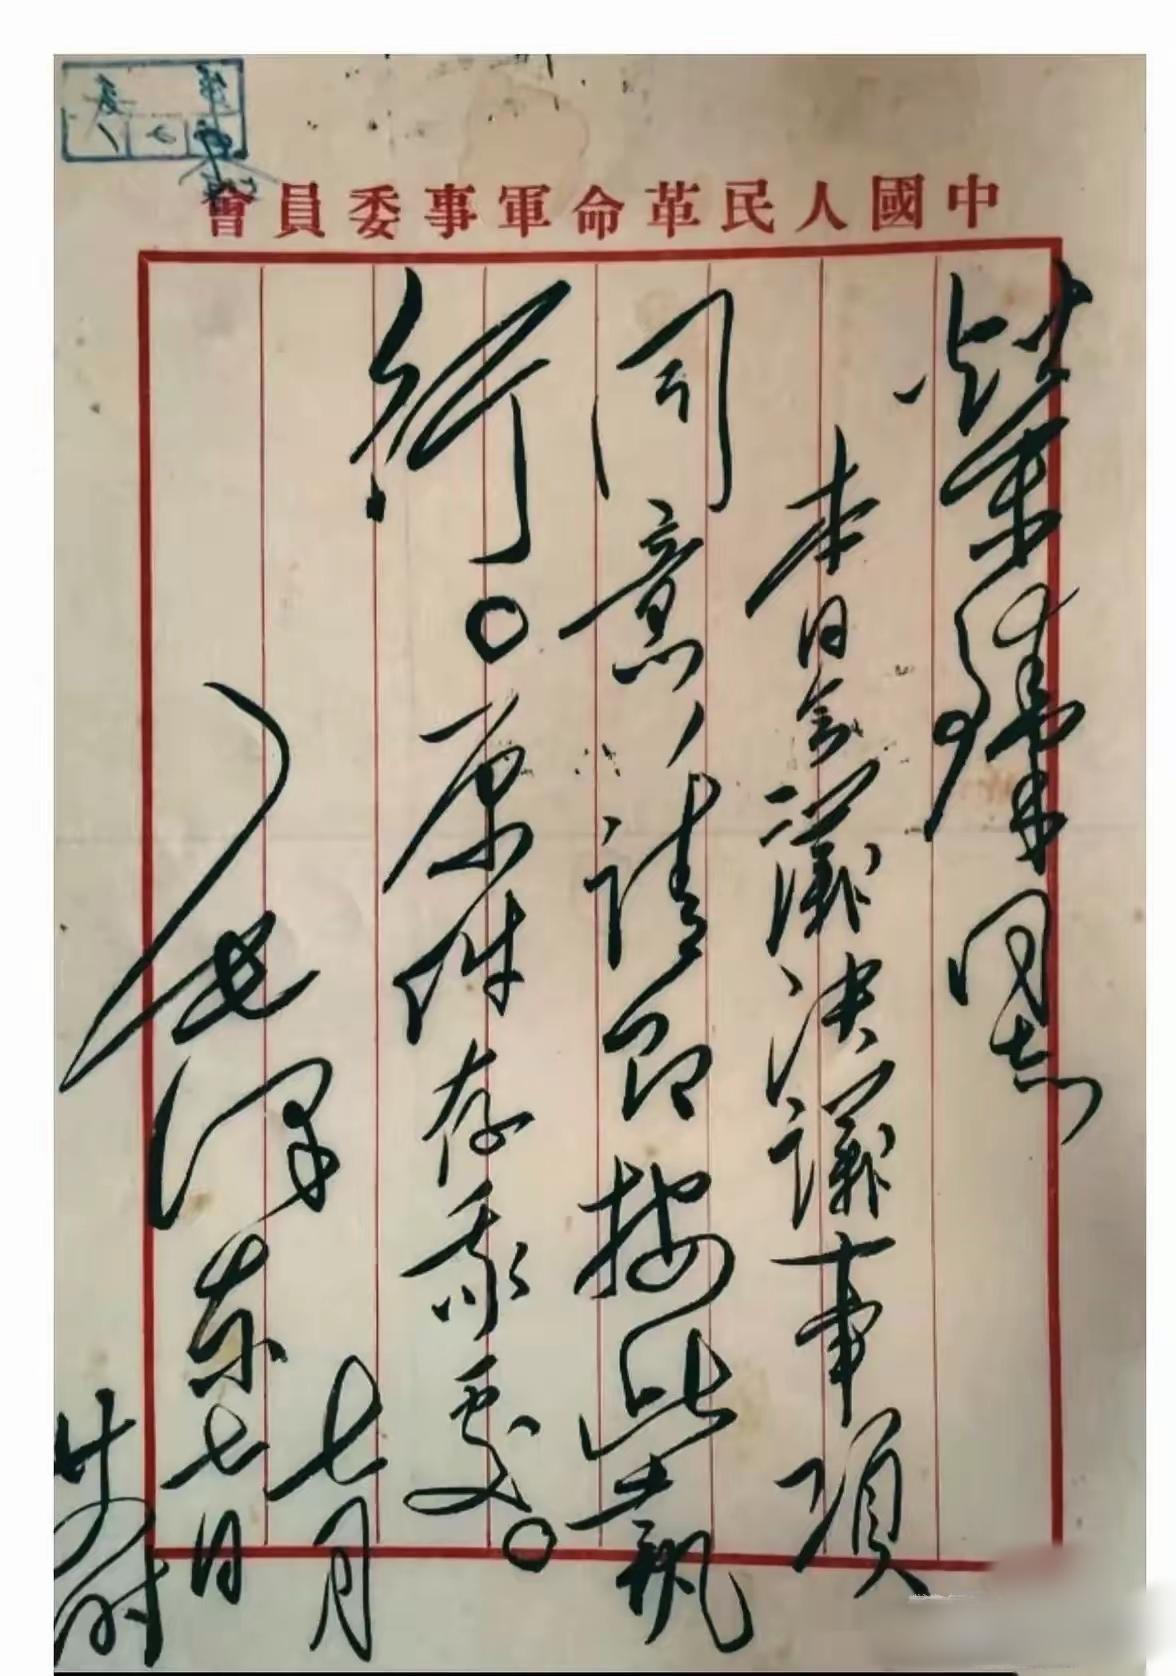 中國人民革命軍事委員會
榮臻同志
本日会議决議事項
同意，請即按此執
行。原件存我處。
毛泽东
七月
七日
廿四时